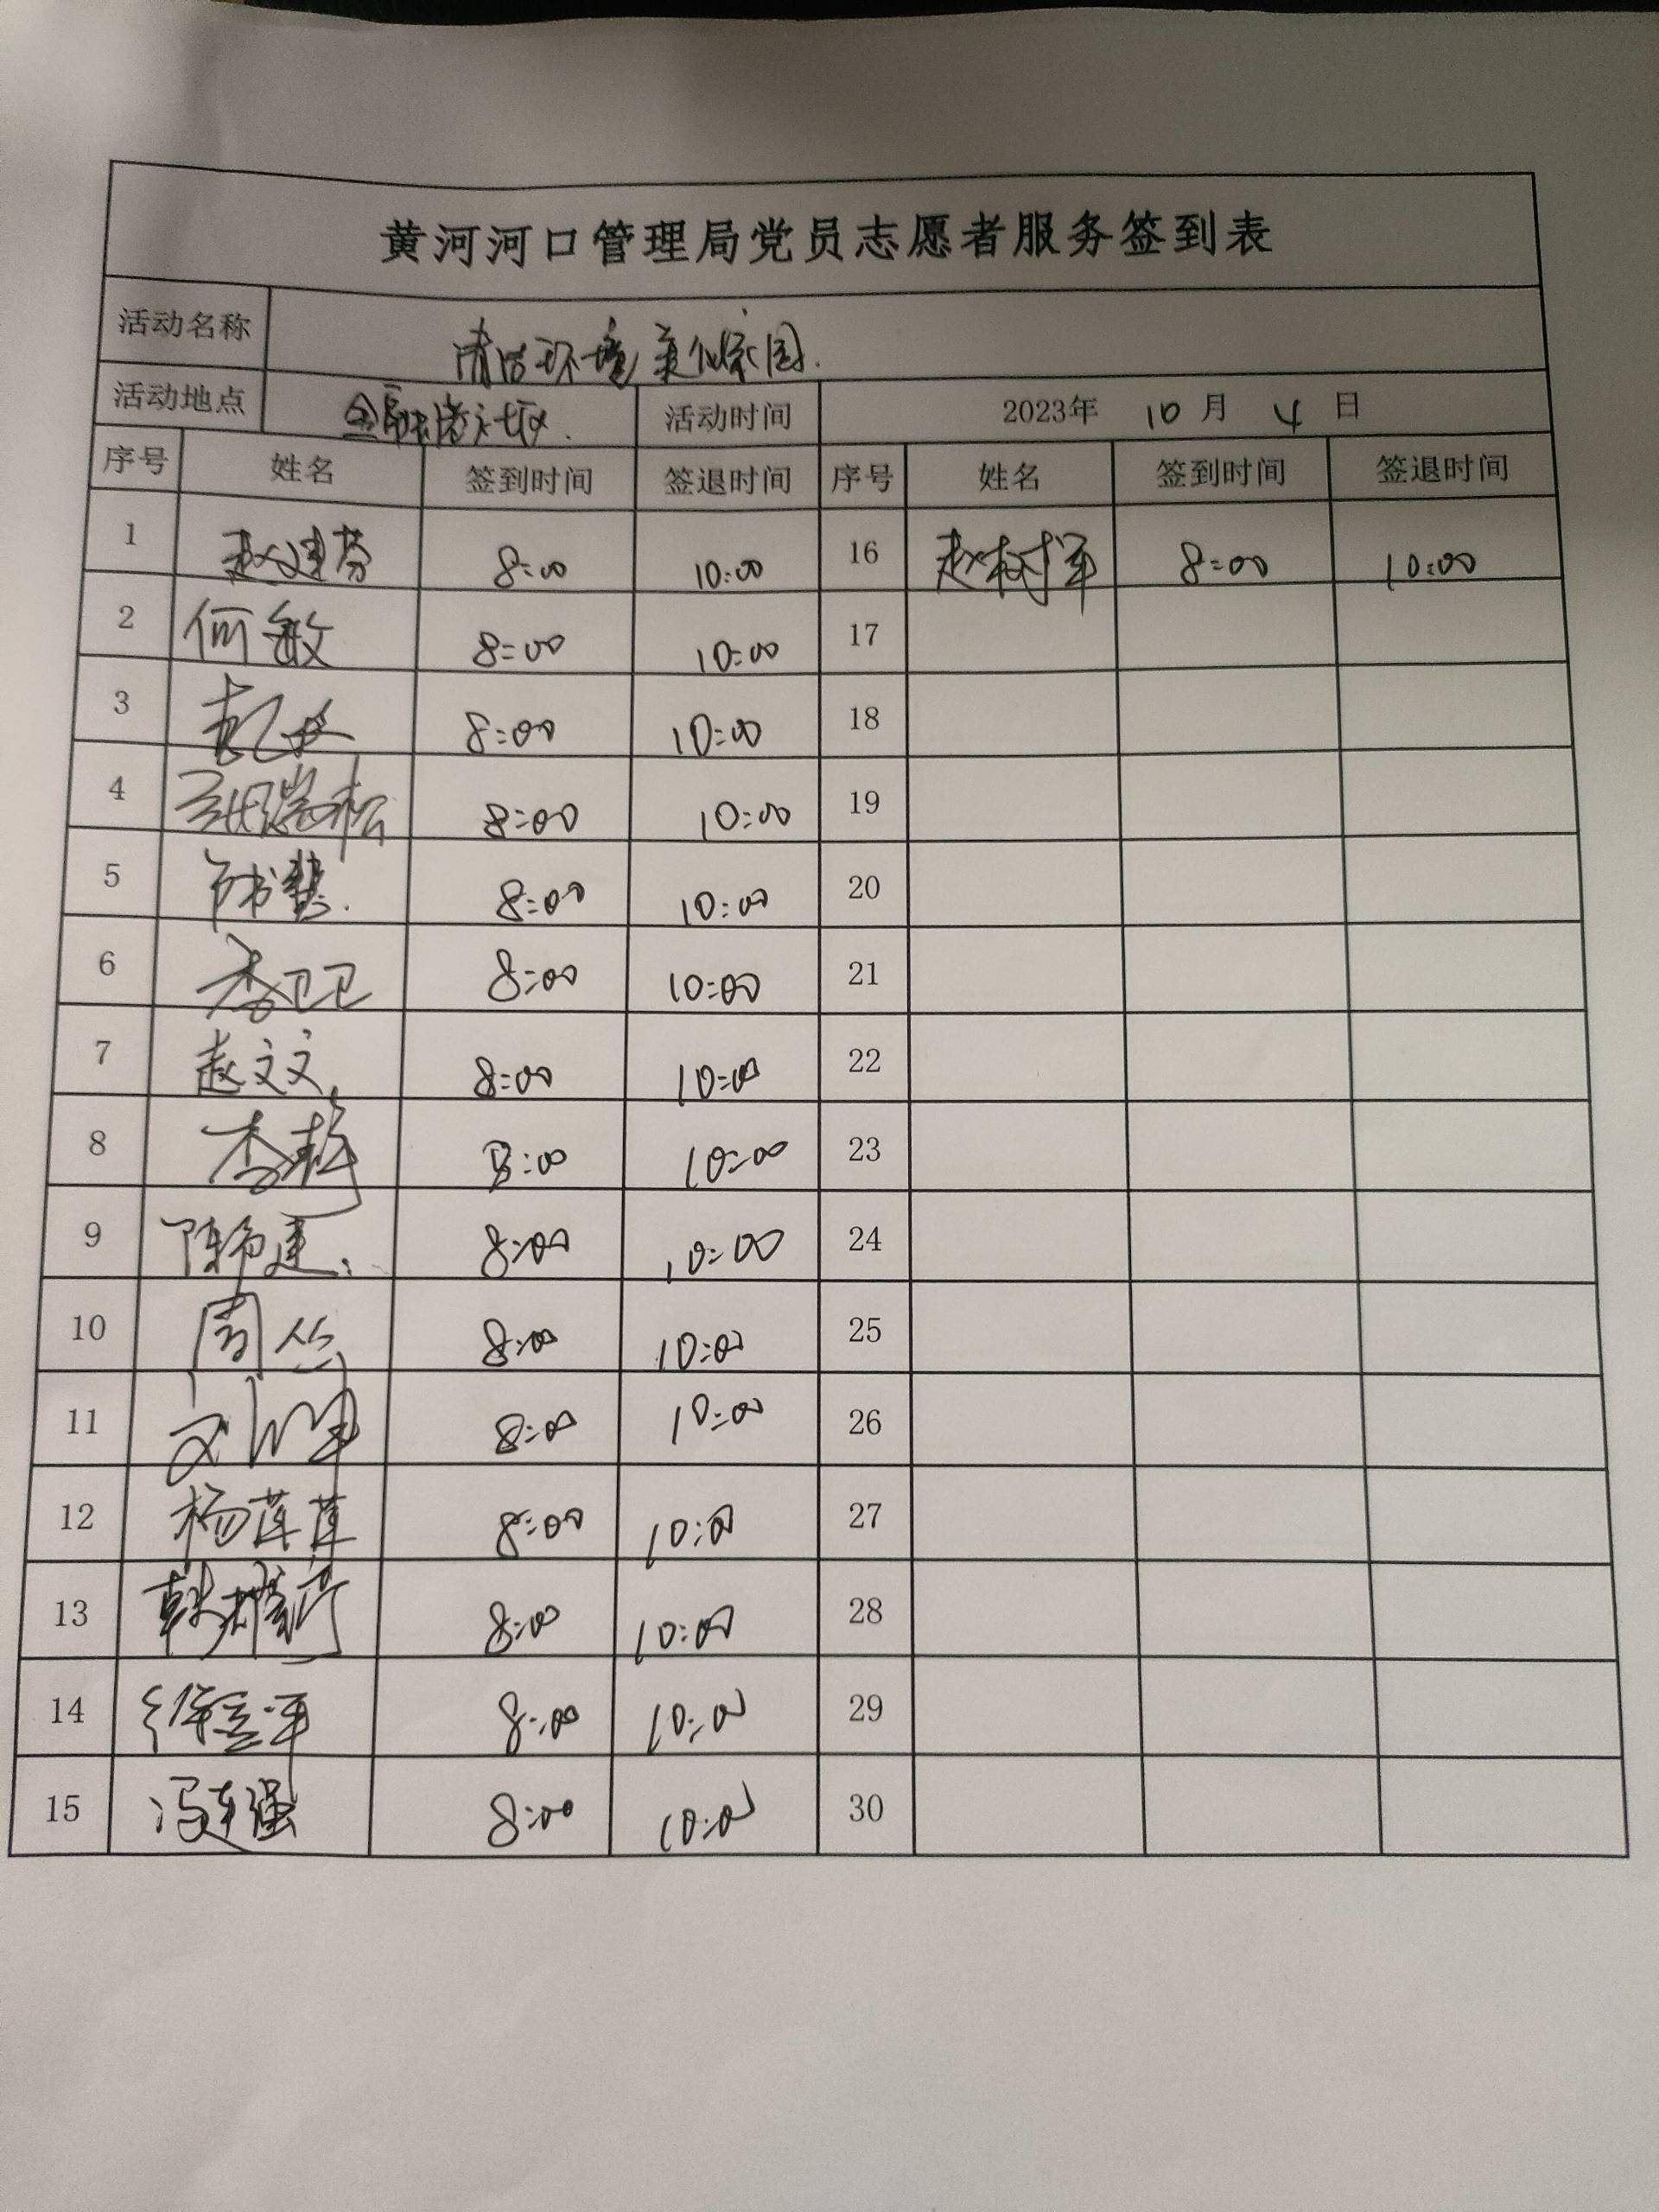 黄河河口管理局党员志愿者服务签到表
活动名称 清洁环境 美化家园.
活动地点 金融港社区. 活动时间 2023年 10 月 4 日
序号 姓名 签到时间 签退时间 序号 姓名 签到时间 签退时间
1 赵建芬 8:00 10:00 16 赵树军 8:00 10:00
2 何敏 8:00 10:00 17
3 8:00 10:00 18
4 8:00 10:00 19
5 8:00 10:00 20
6 李卫卫 8:00 10:00 21
7 赵文文 8:00 10:00 22
8 李 8:00 10:00 23
9 陈希建 8:00 10:00 24
10 周丛 8:00 10:00 25
11 8:00 10:00 26
12 杨莲莲 8:00 10:00 27
13 韩 8:00 10:00 28
14 军 8:00 10:00 29
15 冯连强 8:00 10:00 30